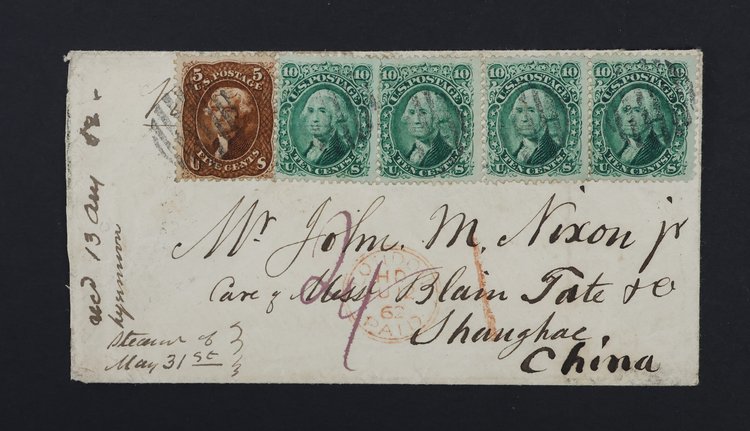 5 5
U.S. POSTAGE
FIVE CENTS
U S
10 10
U.S. POSTAGE
TEN CENTS
U S
10 10
U.S. POSTAGE
TEN CENTS
U S
10 10
U.S. POSTAGE
TEN CENTS
U S
10 10
U.S. POSTAGE
TEN CENTS
U S
Mr John. M. Nixon jr
Care of Mess Blain Tate & Co
Shanghae
China
LONDON
62
PAID
recd 13 Aug 62 -
steamer of
May 31st